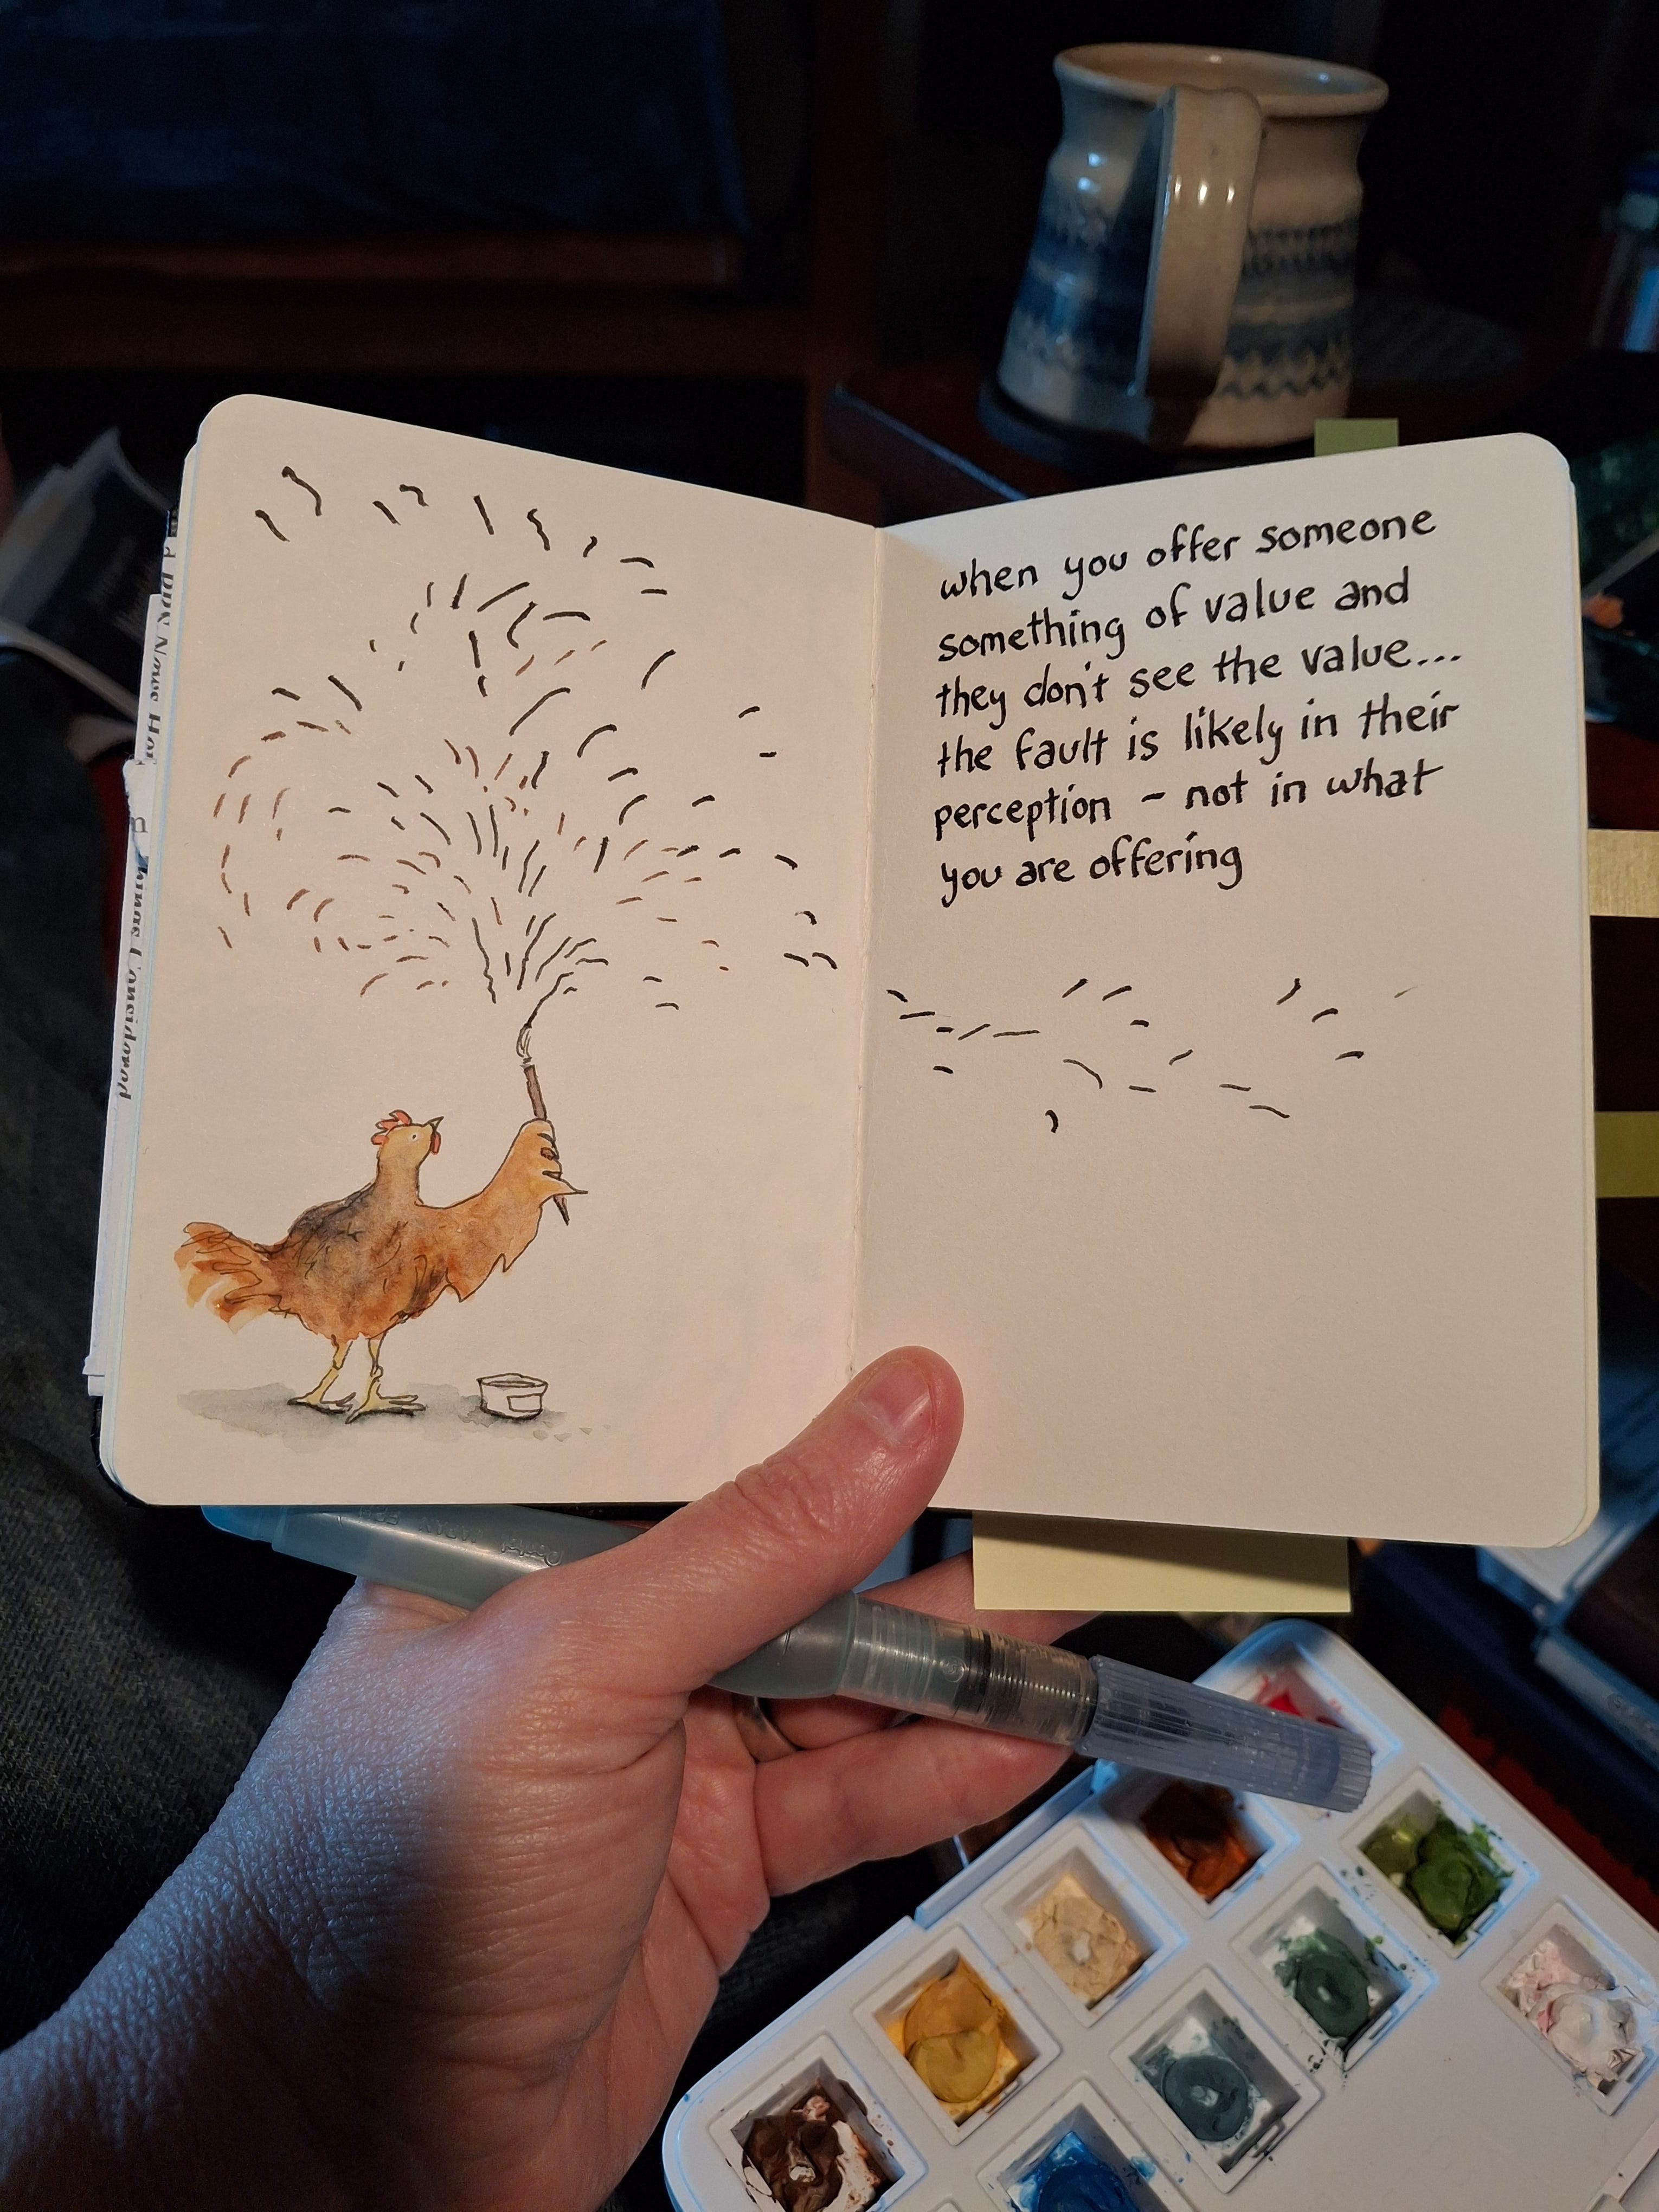 when you offer someone
something of value and
they don't see the value...
the fault is likely in their
perception - not in what
you are offering